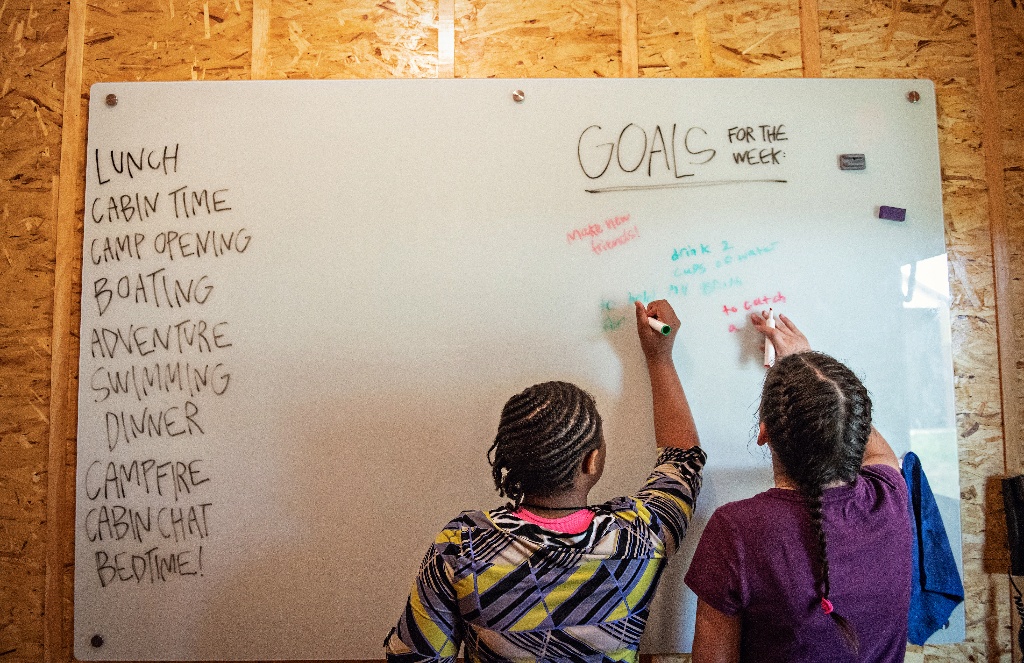 LUNCH
CABIN TIME
CAMP OPENING
BOATING
ADVENTURE
SWIMMING
DINNER
CAMPFIRE
CABIN CHAT
BEDTIME!
GOALS FOR THE
WEEK:
Make new
friends!
drink 2
cups of water
to
to catch
a